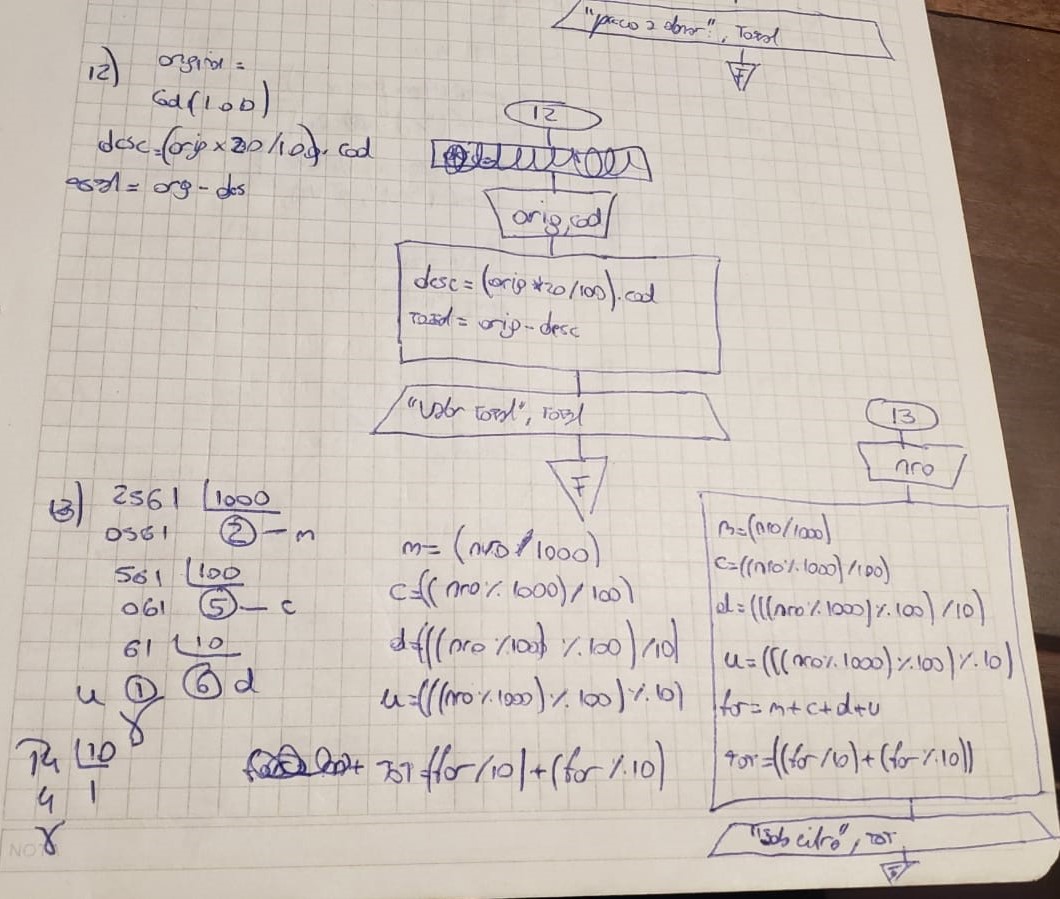 "precio a abonar:", Total
F
12) original =
Cod(1 o 0)
desc=(orig x 20/100). cod
total = org - des
12
orig, cod
desc = (orig * 20/100). cod
total = orig - desc
"Valor total", Total
F
13) 2561 1000
0561 2 - m
561 100
061 5 - c
61 10
u 1 6 d
14 10
4 1
m = (nro/1000)
c=((nro%1000)/100)
d=(((nro%1000)%100)/10)
u=(((nro%1000)%100)%10)
TOT=(for/10)+(for%10)
13
nro
m=(nro/1000)
c=((nro%1000)/100)
d=(((nro%1000)%100)/10)
u=(((nro%1000)%100)%10)
for=m+c+d+u
tot=((for/10)+(for%10))
cifra", TOT
F
NOT